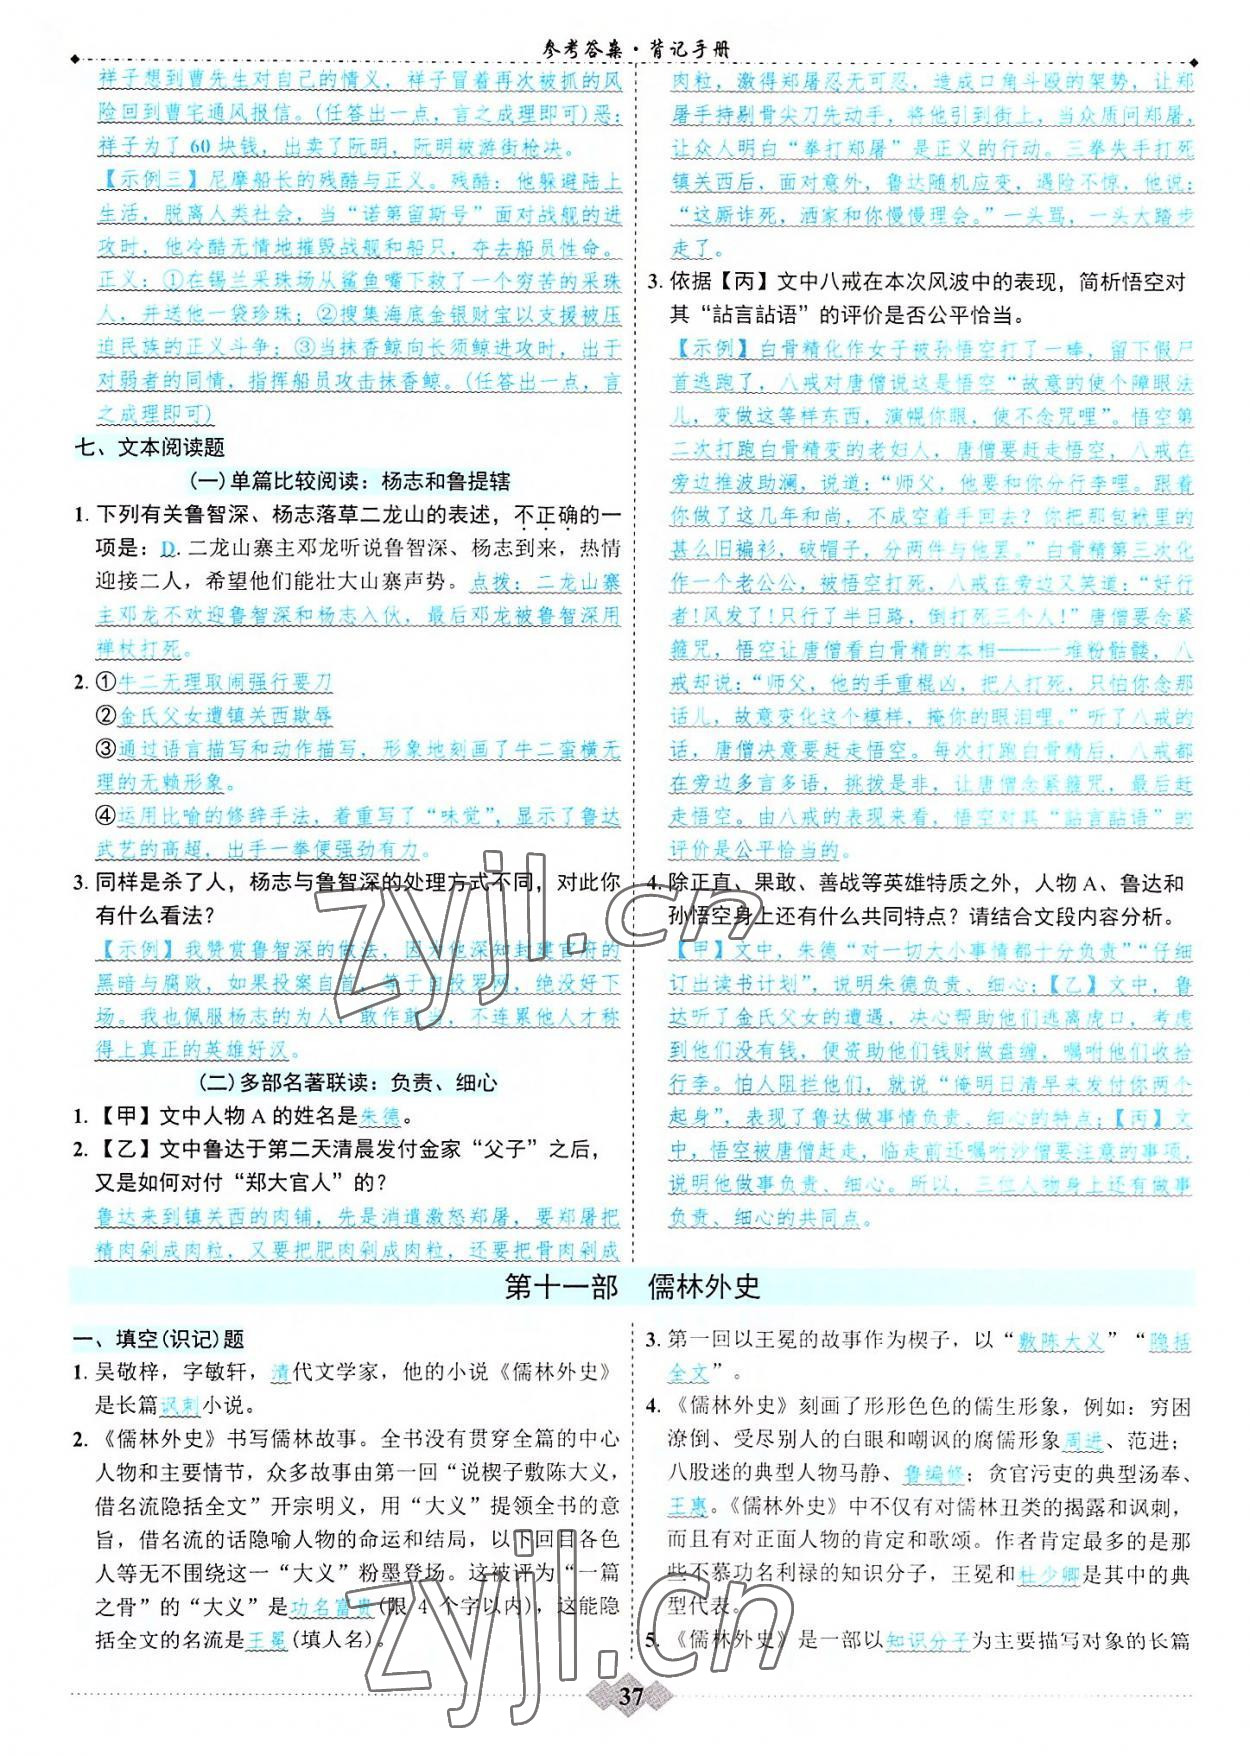 参考答案·背记手册
祥子想到曹先生对自己的情义，祥子冒着再次被抓的风
险回到曹宅通风报信。(任答出一点，言之成理即可)恶：
祥子为了 60 块钱，出卖了阮明，阮明被游街枪决。
【示例三】尼摩船长的残酷与正义。残酷：他躲避陆上
生活，脱离人类社会，当“诺第留斯号”面对战舰的进
攻时，他冷酷无情地摧毁战舰和船只，夺去船员性命。
正义：①在锡兰采珠场从鲨鱼嘴下救了一个穷苦的采珠
人，并送他一袋珍珠；②搜集海底金银财宝以支援被压
迫民族的正义斗争；③当抹香鲸向长须鲸进攻时，出于
对弱者的同情，指挥船员攻击抹香鲸。(任答出一点，言
之成理即可)
七、文本阅读题
(一)单篇比较阅读：杨志和鲁提辖
1. 下列有关鲁智深、杨志落草二龙山的表述，不正确的一
项是：D. 二龙山寨主邓龙听说鲁智深、杨志到来，热情
迎接二人，希望他们能壮大山寨声势。点拨：二龙山寨
主邓龙不欢迎鲁智深和杨志入伙，最后邓龙被鲁智深用
禅杖打死。
2. ①牛二无理取闹强行要刀
②金氏父女遭镇关西欺辱
③通过语言描写和动作描写，形象地刻画了牛二蛮横无
理的无赖形象。
④运用比喻的修辞手法，着重写了“味觉”，显示了鲁达
武艺的高超，出手一拳便强劲有力。
3. 同样是杀了人，杨志与鲁智深的处理方式不同，对此你
有什么看法？
【示例】我赞赏鲁智深的做法，因为他深知封建官府的
黑暗与腐败，如果投案自首，等于自投罗网，绝没好下
场。我也佩服杨志的为人，敢作敢当，不连累他人才称
得上真正的英雄好汉。
(二)多部名著联读：负责、细心
1. 【甲】文中人物 A 的姓名是朱德。
2. 【乙】文中鲁达于第二天清晨发付金家“父子”之后，
又是如何对付“郑大官人”的？
鲁达来到镇关西的肉铺，先是消遣激怒郑屠，要郑屠把
精肉剁成肉粒，又要把肥肉剁成肉粒，还要把骨肉剁成
肉粒，激得郑屠忍无可忍，造成口角斗殴的架势，让郑
屠手持剔骨尖刀先动手，将他引到街上，当众质问郑屠，
让众人明白“拳打郑屠”是正义的行动。三拳失手打死
镇关西后，面对意外，鲁达随机应变，遇险不惊，他说：
“这厮诈死，洒家和你慢慢理会。”一头骂，一头大踏步
走了。
3. 依据【丙】文中八戒在本次风波中的表现，简析悟空对
其“詀言詀语”的评价是否公平恰当。
【示例】白骨精化作女子被孙悟空打了一棒，留下假尸
首逃跑了，八戒对唐僧说这是悟空“故意的使个障眼法
儿，变做这等样东西，演幌你眼，使不念咒哩”。悟空第
二次打跑白骨精变的老妇人，唐僧要赶走悟空，八戒在
旁边推波助澜，说道：“师父，他要和你分行李哩。跟着
你做了这几年和尚，不成空着手回去？你把那包袱里的
甚么旧褊衫，破帽子，分两件与他罢。”白骨精第三次化
作一个老公公，被悟空打死，八戒在旁边又笑道：“好行
者！风发了！只行了半日路，倒打死三个人！”唐僧要念紧
箍咒，悟空让唐僧看白骨精的本相——一堆粉骷髅，八
戒却说：“师父，他的手重棍凶，把人打死，只怕你念那
话儿，故意变化这个模样，掩你的眼泪哩。”听了八戒的
话，唐僧决意要赶走悟空。每次打跑白骨精后，八戒都
在旁边多言多语，挑拨是非，让唐僧念紧箍咒，最后赶
走悟空。由八戒的表现来看，悟空对其“詀言詀语”的
评价是公平恰当的。
4. 除正直、果敢、善战等英雄特质之外，人物 A、鲁达和
孙悟空身上还有什么共同特点？请结合文段内容分析。
【甲】文中，朱德“对一切大小事情都十分负责”“仔细
订出读书计划”，说明朱德负责、细心；【乙】文中，鲁
达听了金氏父女的遭遇，决心帮助他们逃离虎口，考虑
到他们没有钱，便资助他们钱财做盘缠，嘱咐他们收拾
行李。怕人阻拦他们，就说“俺明日清早来发付你两个
起身”，表现了鲁达做事情负责、细心的特点；【丙】文
中，悟空被唐僧赶走，临走前还嘱咐沙僧要注意的事项，
说明他做事负责、细心。所以，三位人物身上还有做事
负责、细心的共同点。
第十一部 儒林外史
一、填空(识记)题
1. 吴敬梓，字敏轩，清代文学家，他的小说《儒林外史》
是长篇讽刺小说。
2. 《儒林外史》书写儒林故事。全书没有贯穿全篇的中心
人物和主要情节，众多故事由第一回“说楔子敷陈大义，
借名流隐括全文”开宗明义，用“大义”提领全书的意
旨，借名流的话隐喻人物的命运和结局，以下回目各色
人等无不围绕这一“大义”粉墨登场。这被评为“一篇
之骨”的“大义”是功名富贵(限 4 个字以内)，这能隐
括全文的名流是王冕(填人名)。
3. 第一回以王冕的故事作为楔子，以“敷陈大义”“隐括
全文”。
4. 《儒林外史》刻画了形形色色的儒生形象，例如：穷困
潦倒、受尽别人的白眼和嘲讽的腐儒形象周进、范进；
八股迷的典型人物马静、鲁编修；贪官污吏的典型汤奉、
王惠。《儒林外史》中不仅有对儒林丑类的揭露和讽刺，
而且有对正面人物的肯定和歌颂。作者肯定最多的是那
些不慕功名利禄的知识分子，王冕和杜少卿是其中的典
型代表。
5. 《儒林外史》是一部以知识分子为主要描写对象的长篇
37
zyjl.cn
zyjl.cn